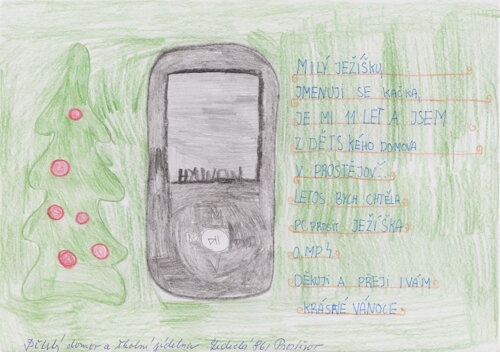 MILÝ JEŽÍŠKU,
JMENUJI SE KAČKA,
JE MI 11 LET A JSEM
Z DĚTSKÉHO DOMOVA
V PROSTĚJOVĚ.
LETOS BYCH CHTĚLA
POPROSIT JEŽÍŠKA
O MP4
DĚKUJI A PŘEJI I VÁM
KRÁSNÉ VÁNOCE
HYUNDAI
Dětský domov a školní jídelna 861 Prostějov